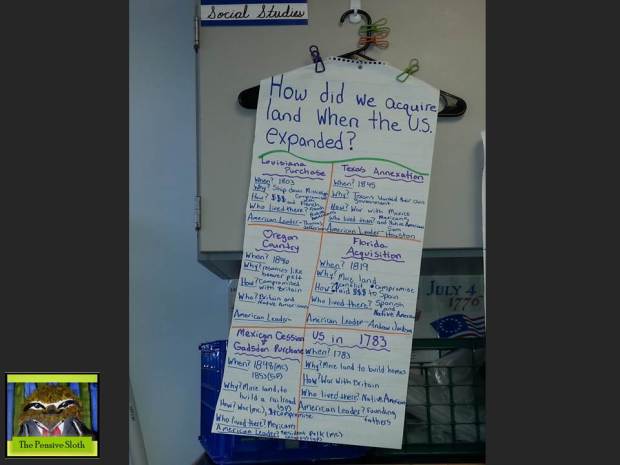 Social Studies
How did we acquire
land when the U.S.
expanded?
Louisiana
Purchase
When? 1803
Why? Ship down Mississippi
How? $$$ Compromise
French
Who lived there? French
Native
American Leader- Thomas
Jefferson
Texas Annexation
When? 1845
Why? Texans wanted their own
government
How? War with Mexico
Who lived there? Mexicans
and Native Americans
American Leader- Sam
Houston
Oregon
Country
When? 1846
Why? resources like
beaver pelt
How? Compromised
with Britain
Who? Britain and
Native Americans
American Leader-
Florida
Acquisition
When? 1819
Why? More land
How? Conflict Compromise
Paid $$$ to Spain
Who lived there? Spanish
and
Native American
American Leader- Andrew Jackson
Mexican Cession
Gadsden Purchase
When? 1848(MC)
1853(GP)
Why? More land, to
build a railroad
(GP)
How? War(MC), $ compromise
Who lived there? Mexicans
American Leader? President Polk (MC)
US in 1783
When? 1783
Why? More land to build homes
How? War with Britain
Who lived there? Native Americans
American Leader? Founding
Fathers
JULY 4
1776
The Pensive Sloth